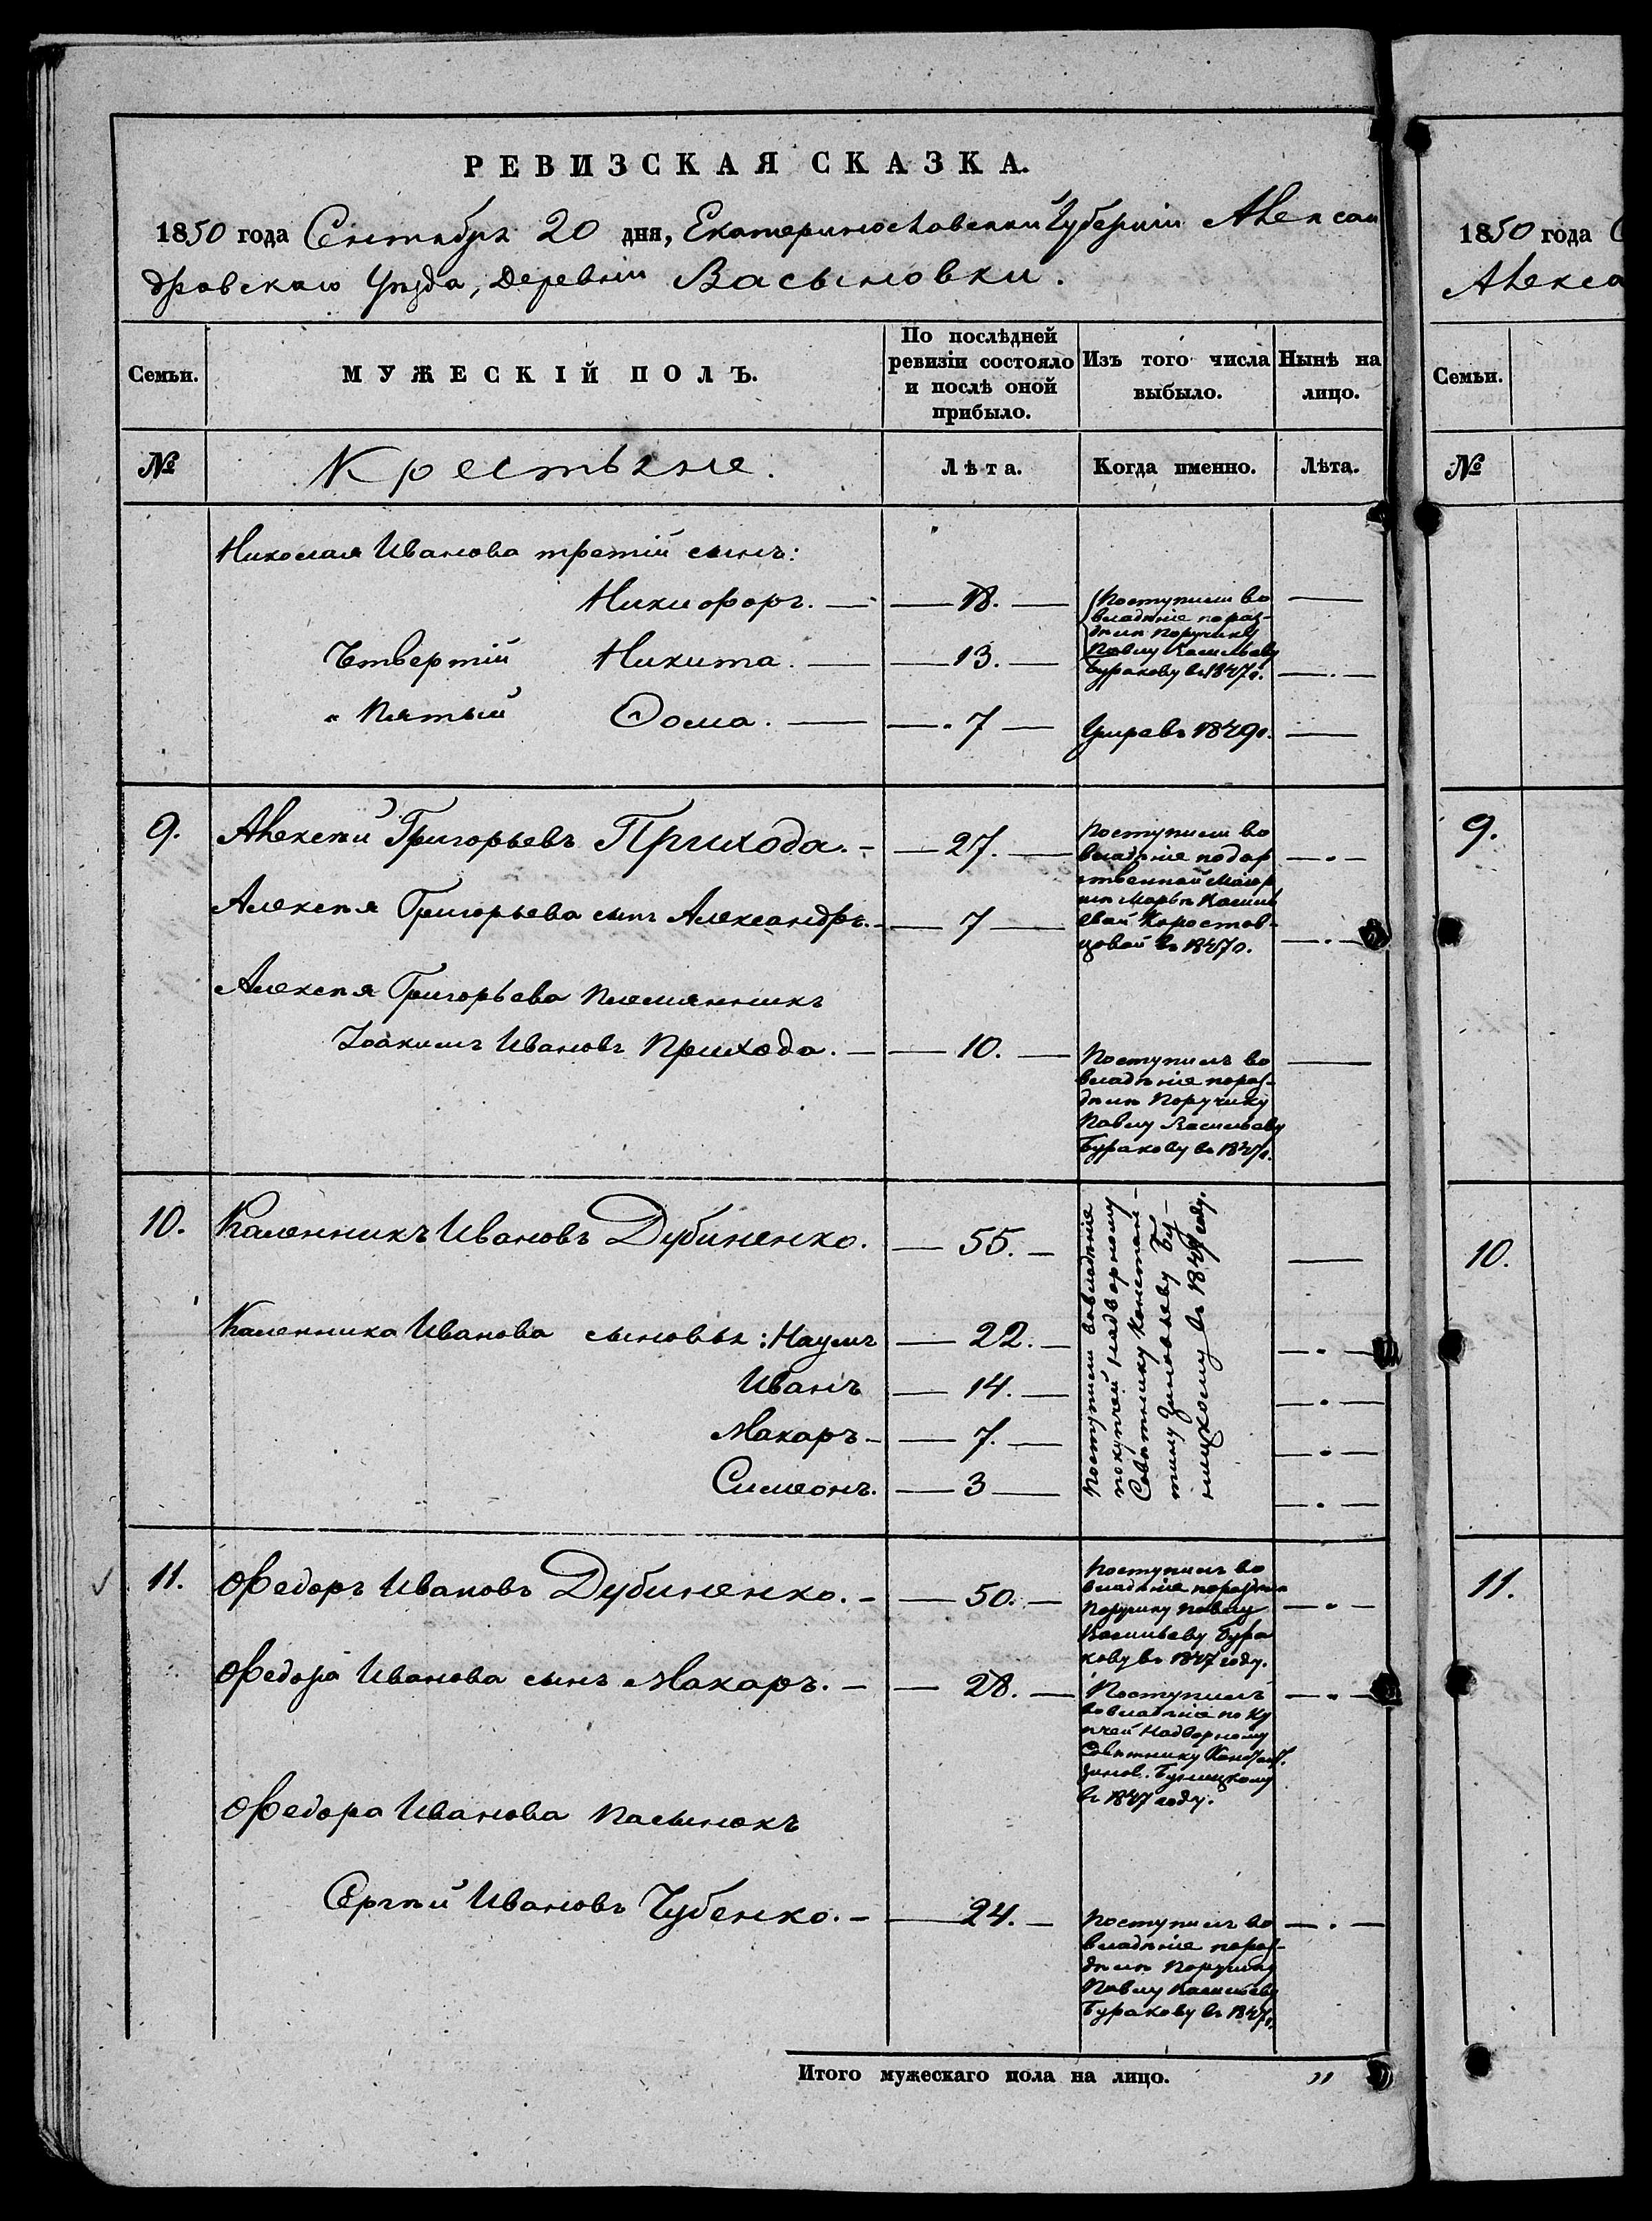 РЕВИЗСКАЯ СКАЗКА.
1850 года Сентября 20 дня, Екатеринославской Губерніи Алексан
дровскаго Уѣзда, Деревни Васыновки.
Семьи.
МУЖЕСКІЙ ПОЛЪ.
По послѣдней
ревизіи состояло
и послѣ оной
прибыло.
Изъ того числа
выбыло.
Нынѣ на
лицо.
№
Крестьяне.
Лѣта.
Когда именно.
Лѣта.
Николая Иванова третій сынъ:
Никифоръ. — 18. —
Поступили во
владѣніе пораз-
дѣлѣ Поручику
Павлу Васильеву
Буракову въ 1847 г.
Четвертій Никита. — 13. —
" Пятый Ѳома. — 7 — Умре въ 1849 г. —
9. Алексѣй Григорьевъ Прихода. — 27. —
Поступили во
владѣніе подар
ственной Маіор
шѣ Марьѣ Василь
евой Коростов-
цовой въ 1847 г.
Алексѣя Григорьева сынъ Александръ. — 7 —
Алексѣя Григорьева племянникъ
Іоакимъ Ивановъ Прихода. — 10. —
Поступилъ во
владѣніе пораз-
дѣлѣ Поручику
Павлу Васильеву
Буракову въ 1847 г.
10. Каленникъ Ивановъ Дубиненко. — 55. —
Поступили вовладѣніе
покупчей Надворному
Совѣтнику Констан-
тину Зиновьеву Бу-
ницкому въ 1847 году.
Каленника Иванова сыновья: Наумъ — 22. —
Иванъ — 14. —
Макаръ — 7. —
Симеонъ. — 3 —
11. Федоръ Ивановъ Дубиненко. — 50. —
Поступилъ во
владѣніе пораздѣлѣ
Поручику Павлу
Васильеву Бура
кову въ 1847 году.
Федора Иванова сынъ Макаръ. — 28. —
Поступилъ
во владѣніе по ку
пчей Надворному
Совѣтнику Констант.
Зинов. Буницкому
въ 1847 году.
Федора Иванова пасынокъ
Сергѣй Ивановъ Чубенко. — 24. —
Поступилъ во
владѣніе пораз-
дѣлѣ Поручику
Павлу Васильеву
Буракову въ 1847 г.
Итого мужескаго пола на лицо. "
1850 года С
Алекса
Семьи.
№
9.
10.
11.